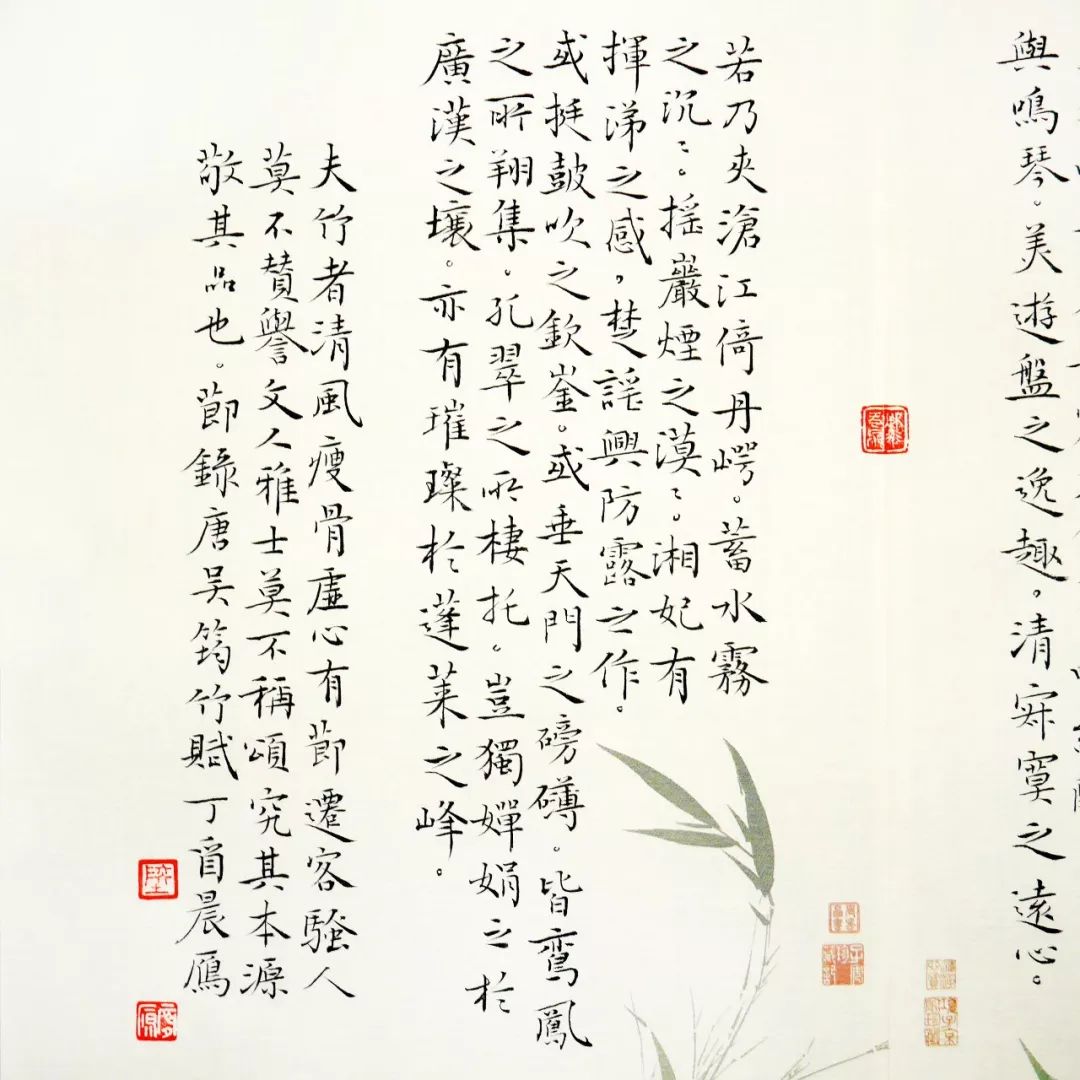 與鳴琴。美遊盤之逸趣,清寂寞之遠心。
若乃夾滄江倚丹崿。蓄水霧
之沉〻。搖巖煙之漠〻。湘妃有
揮涕之感,楚謠興防露之作。
或挺鼓吹之欽崟。或垂天門之磅礴。皆鸞鳳
之所翔集。孔翠之所棲托。豈獨嬋娟之於
廣漢之壤。亦有璀璨於蓬萊之峰。
夫竹者清風瘦骨虛心有節遷客騷人
莫不贊譽文人雅士莫不稱頌究其本源
敬其品也。節錄唐吴筠竹賦丁酉晨雁